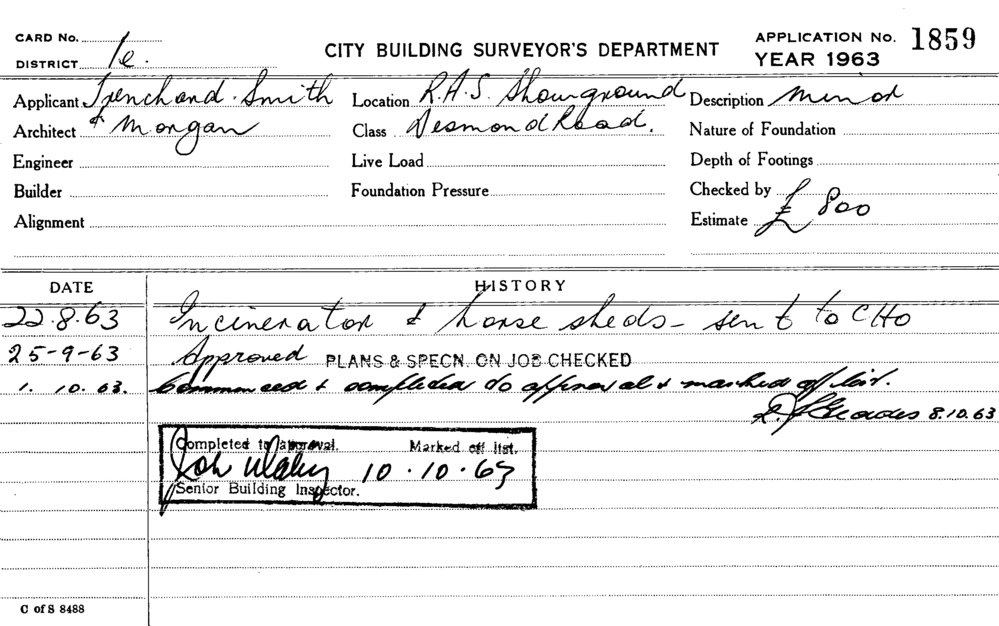 CARD No.
DISTRICT 1e.
CITY BUILDING SURVEYOR'S DEPARTMENT
APPLICATION No. 1859
YEAR 1963
Applicant Trenchard. Smith
Architect & Morgan
Engineer
Builder
Alignment
Location R.A.S. Showground
Class Desmond Road.
Live Load
Foundation Pressure
Description Minor
Nature of Foundation
Depth of Footings
Checked by
Estimate £ 800
DATE HISTORY
22.8.63 Incinerator & horse sheds - sent to CHO
25-9-63 Approved PLANS & SPECN. ON JOB CHECKED
1. 10. 63. Commenced & completed to approval & marked off list.
8.10.63
Completed to approval. Marked off list.
10.10.63
Senior Building Inspector.
C of S 8488